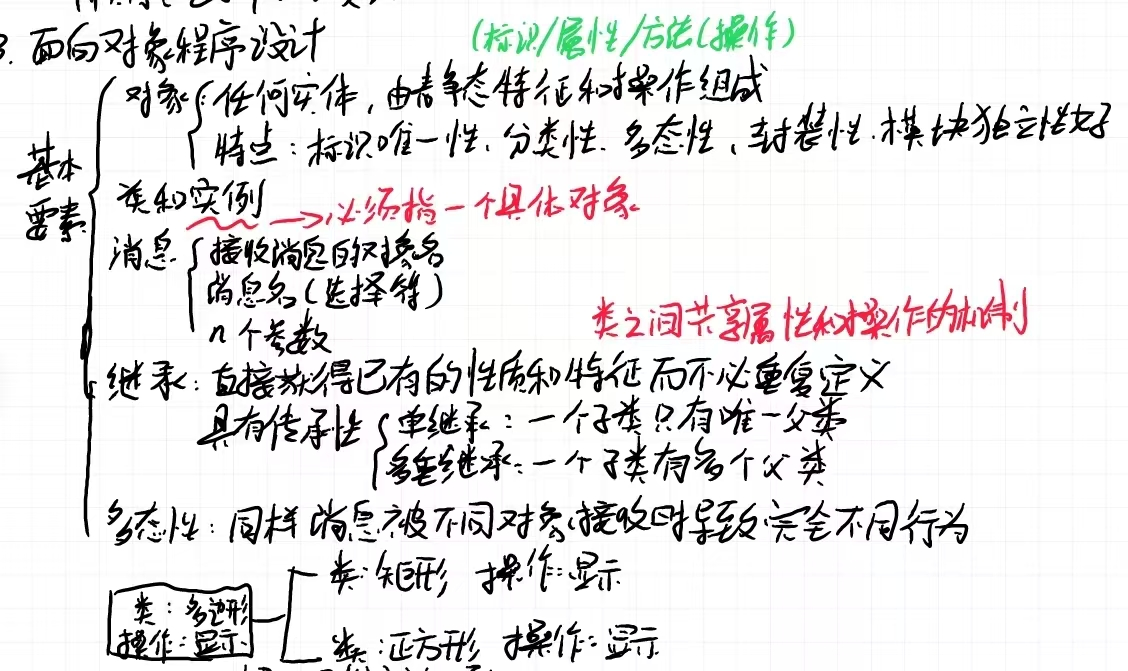 3. 面向对象程序设计
(标识/属性/方法(操作)
基本要素
对象 任何实体，由静态特征和操作组成
特点：标识唯一性、分类性、多态性、封装性、模块独立性好
类和实例 → 必须指一个具体对象
消息 接收消息的对象名
消息名(选择符)
n个参数
类之间共享属性和操作的机制
继承：直接获得已有的性质和特征而不必重复定义
具有传承性 单继承：一个子类只有唯一父类
多重继承：一个子类有多个父类
多态性：同样消息被不同对象接收时导致完全不同行为
类：矩形 操作：显示
类：多边形
操作：显示
类：正方形 操作：显示